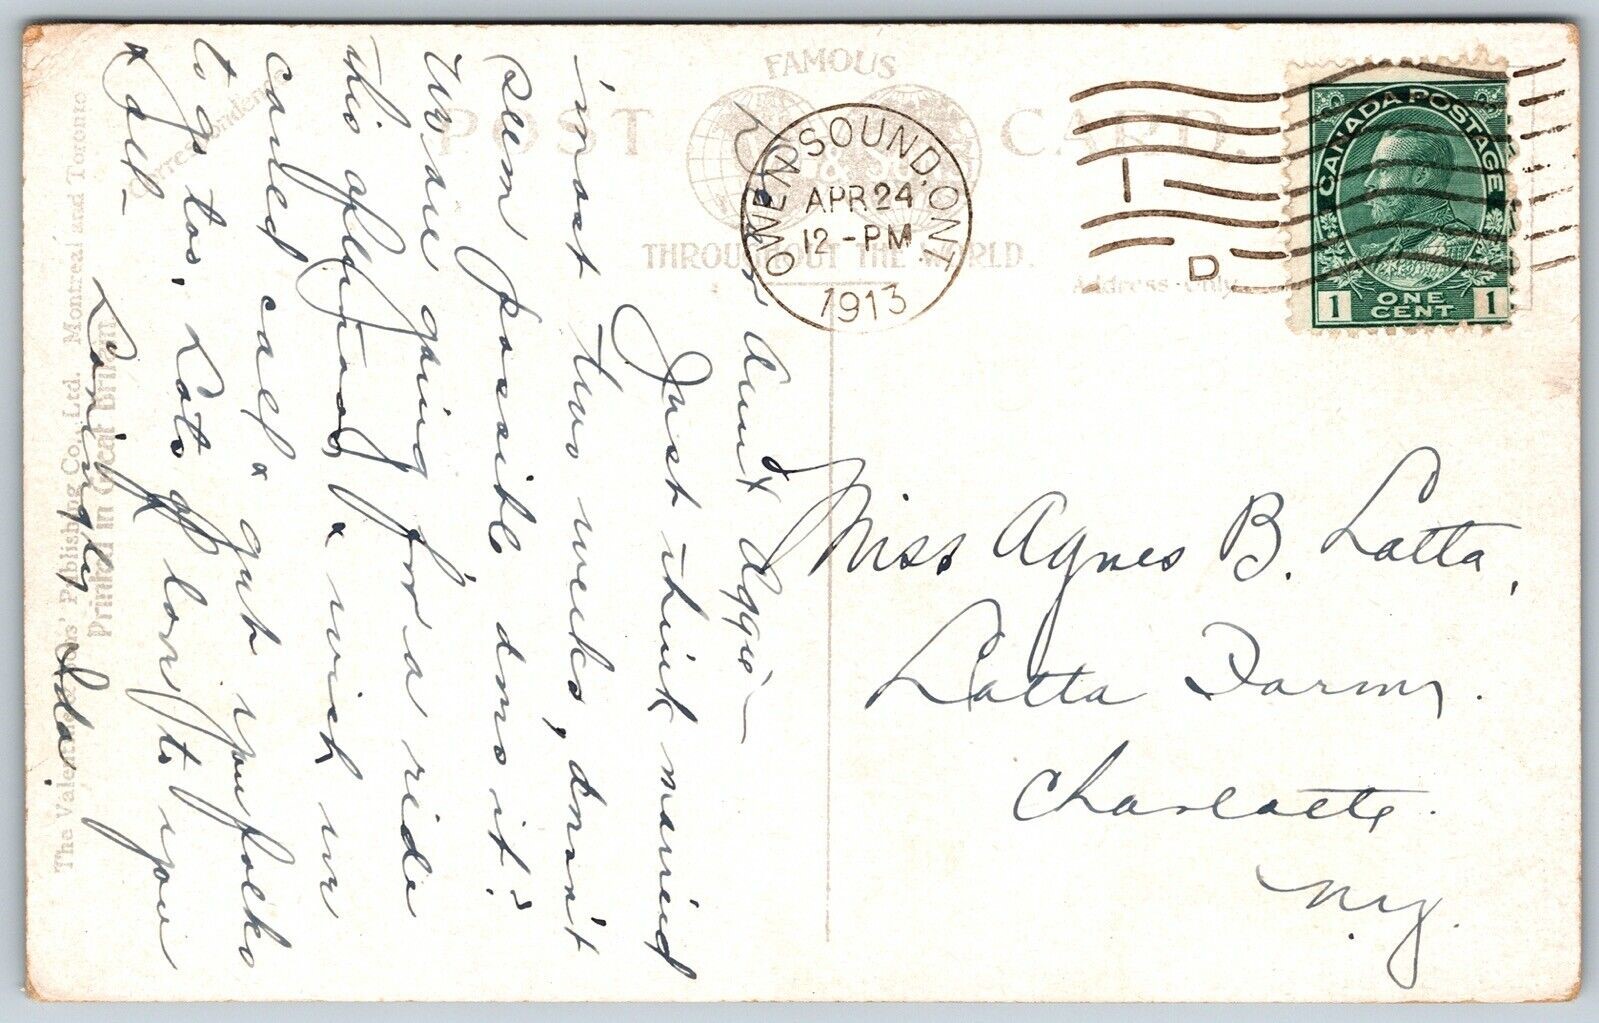 FAMOUS
POST CARD.
THROUGHOUT THE WORLD.
Address Only
Correspondence
OWEN SOUND, ONT.
APR 24
12 - PM
1913
I
D
CANADA POSTAGE
1 ONE CENT 1
Dear Aunt Aggie—
Just think married
'most two weeks, doesn't
seem possible does it?
We are going for a ride
this afternoon & wish we
could call & get you folks
to go too. Lots of love to you
& all—
Lovingly Ida.
Miss Agnes B. Latta,
Latta Farm.
Charlotte.
N.Y.
The Valentine & Sons' Publishing Co., Ltd. Montreal and Toronto
Printed in Great Britain